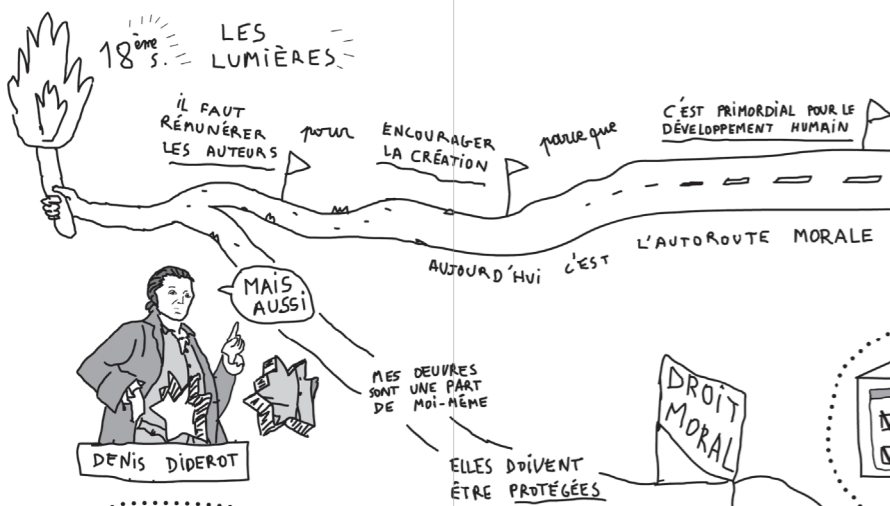 18ème s.
LES
LUMIÈRES
iL FAUT
RÉMUNÉRER
LES AUTEURS
pour
ENCOURAGER
LA CRÉATION
parce que
C'EST PRIMORDIAL POUR LE
DÉVELOPPEMENT HUMAIN
AUJOURD'HUI C'EST L'AUTOROUTE MORALE
MAIS
AUSSi
MES OEUVRES
SONT UNE PART
DE MOI-MÊME
DROIT
MORAL
DENIS DIDEROT
ELLES DOIVENT
ÊTRE PROTÉGÉES